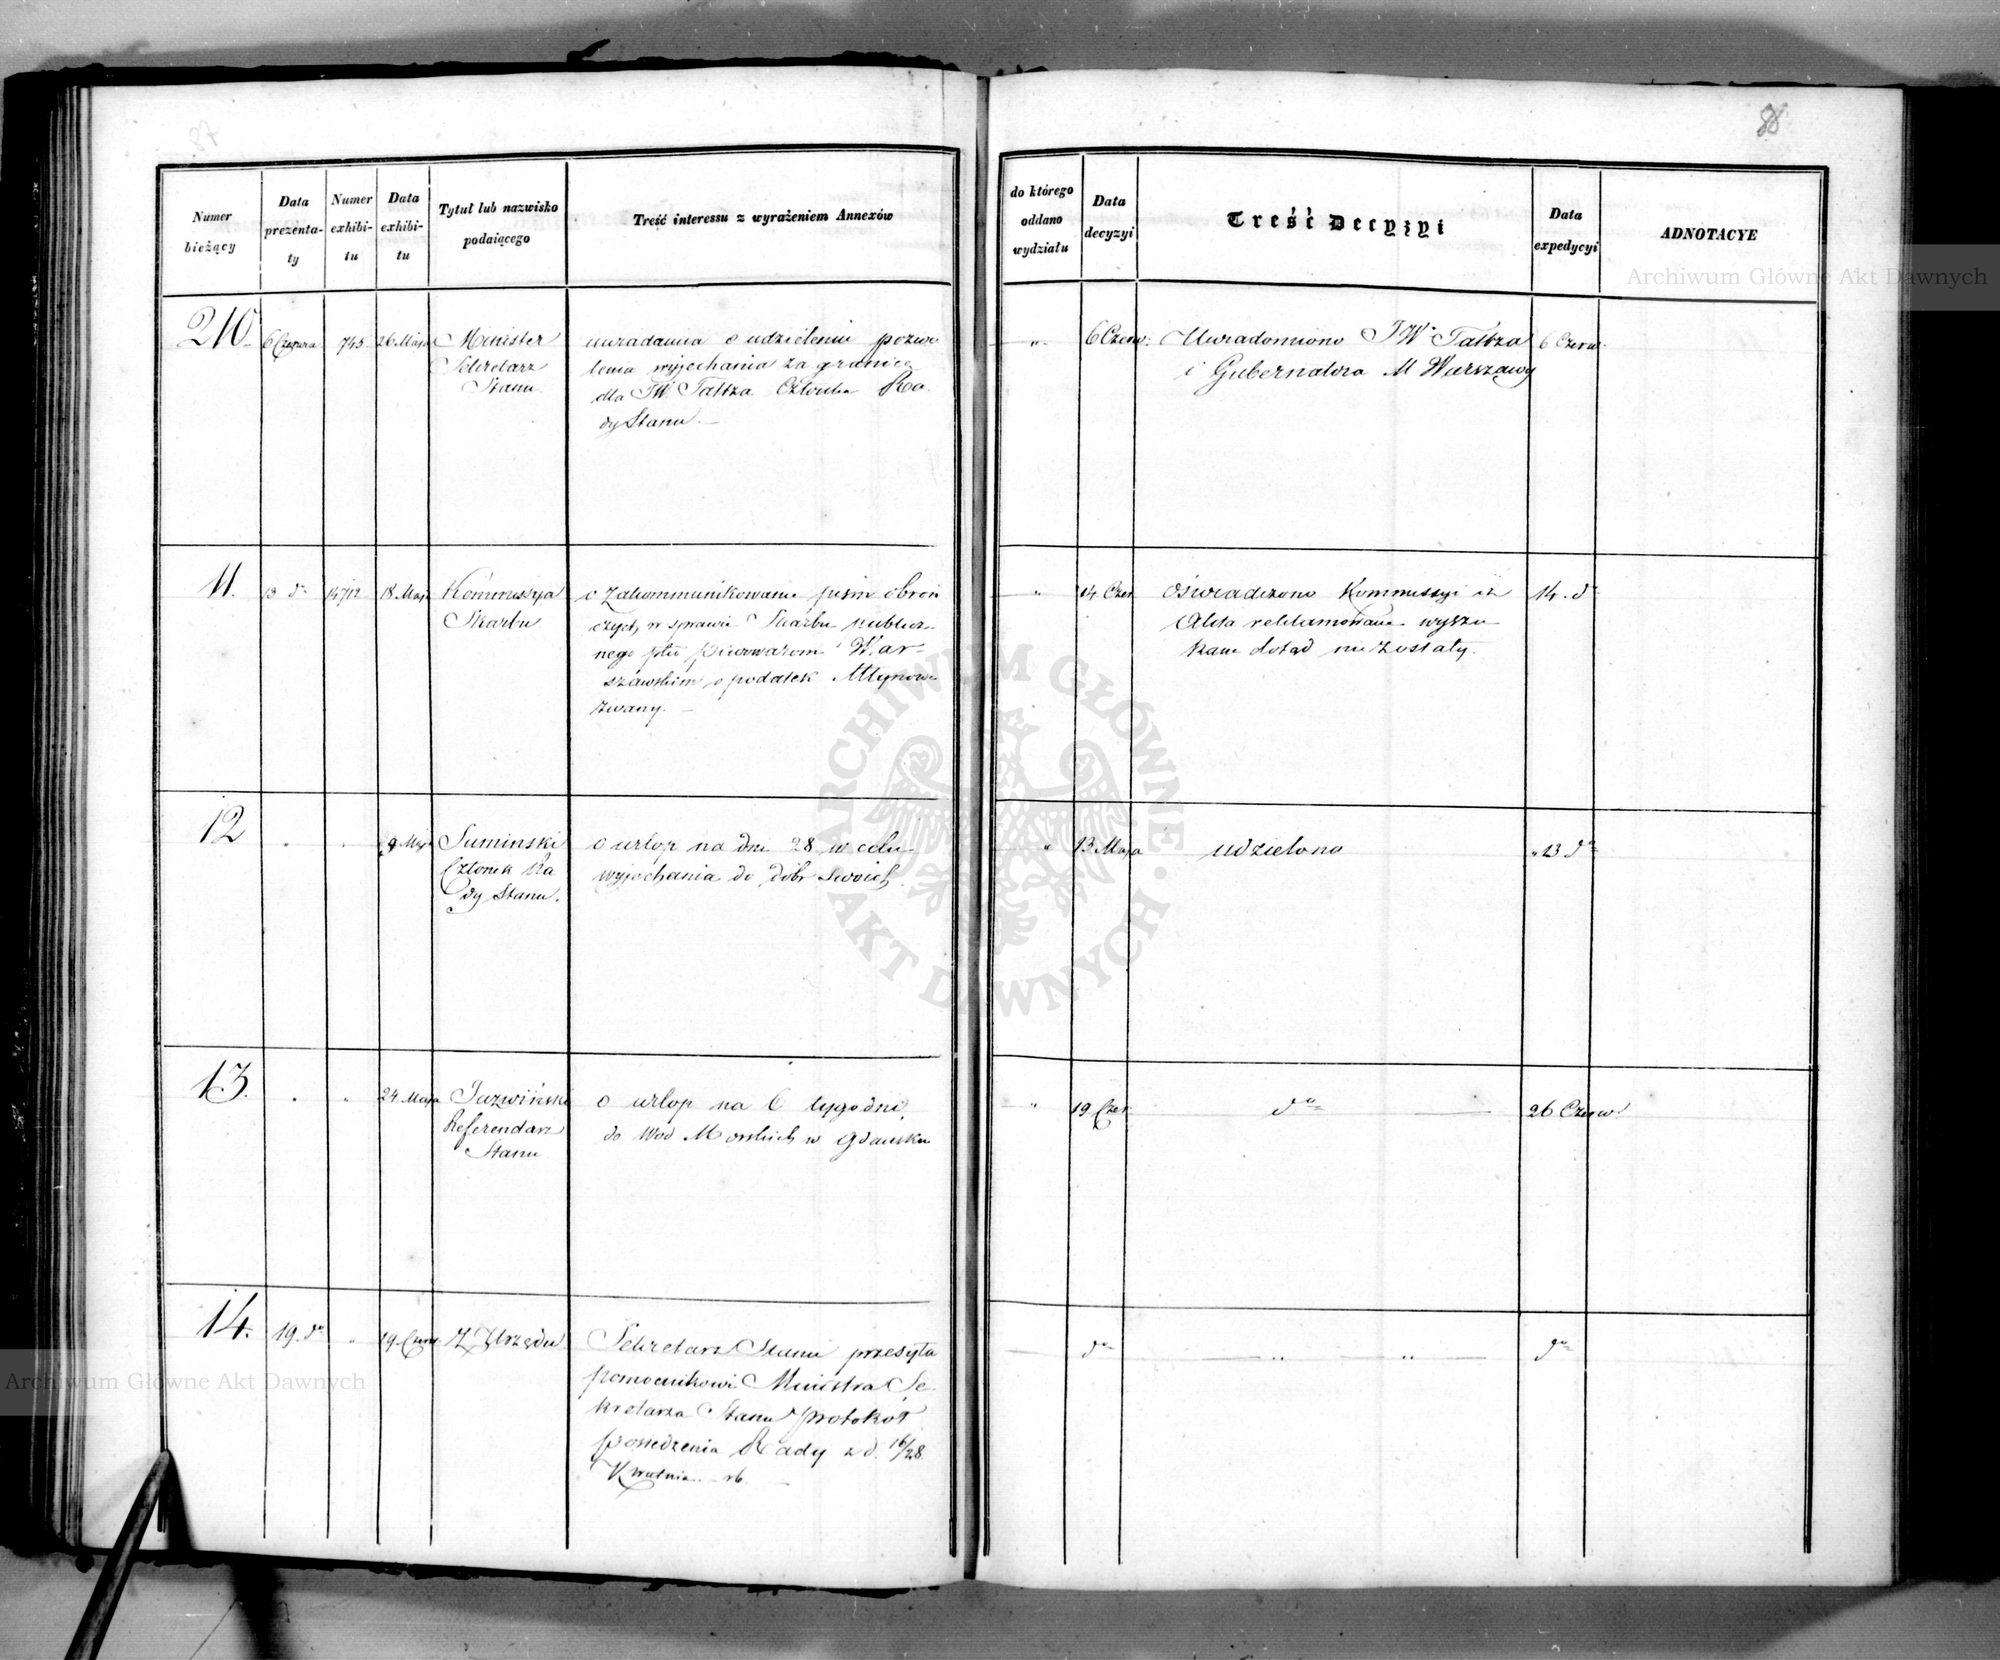 87
88
Numer bieżący
Data prezentaty
Numer exhibitu
Data exhibitu
Tytuł lub nazwisko podaiącego
Treść interessu z wyrażeniem Annexów
do którego oddano wydziału
Data decyzyi
Treść Decyzyi
Data expedycyi
ADNOTACYE
Archiwum Główne Akt Dawnych
210.
6 745 26 Maja
Minister
Sekretarz
Stanu
o udzieleniu pozwo
lenia wyjechania za granicę
dla JW. Członka Ra
dy Stanu. —
„ 6 Czerw:
Uwiadomiono JW
i Gubernatora M Warszawy
6 Czerw.
11.
13 do 14712 18 Maja
Kommissya
Skarbu
o zakommunikowanie pism obroń
czych w sprawie Skarbu publicz-
nego piwowarom War-
szawskim o podatek Młynowe
zwany. —
„ 14 Czer
Oświadczono Kommissyi iż
Akta reklamowane wyszu
kane dotąd nie zostały.
14. do
12
„ „ Maja
Suminski
Członek Ra
dy Stanu.
o urlop na dni 28 w celu
wyjechania do dóbr swoich
„ 13 Maja
udzielono
„ 13 do
13.
„ „ 24 Maja
Jaźwiński
Referendarz
Stanu
o urlop na 6 tygodni
do Wód Morskich w Gdańsku
„ 19 Czer
do
26 Czerw.
14.
19. do „ 19 Czerw
Z Urzędu
Sekretarz Stanu przesyła
pomocnikowi Ministra Se
kretarza Stanu protokół
posiedzenia Rady z d. 16/28
Kwietnia rb. —
do
— „ „ —
do
Archiwum Główne Akt Dawnych
ARCHIWUM GŁÓWNE AKT DAWNYCH